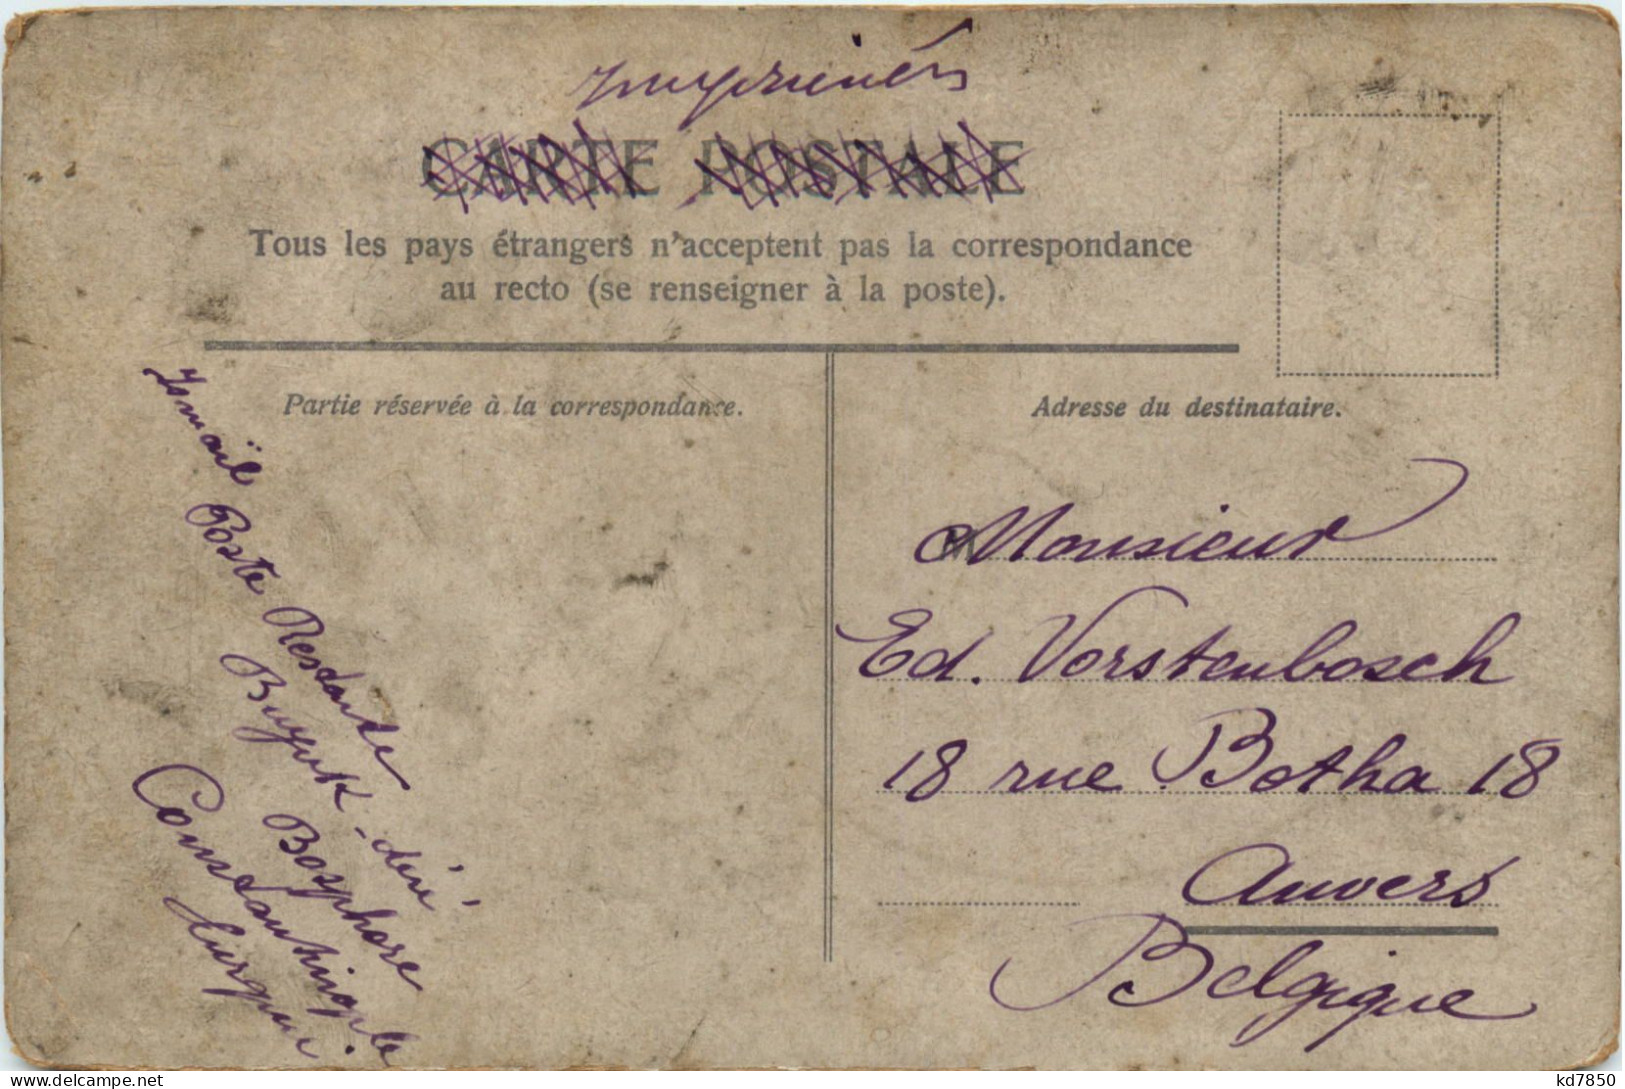 Imprimés
CARTE POSTALE
Tous les pays étrangers n'acceptent pas la correspondance
au recto (se renseigner à la poste).
Partie réservée à la correspondance.
Adresse du destinataire.
Ismaïl Poste Restante
Buyuk-déré
Bosphore
Constantinople
Turquie
Monsieur
Ed. Vorstenbosch
18 rue Botha 18
Anvers
Belgique
kd7850